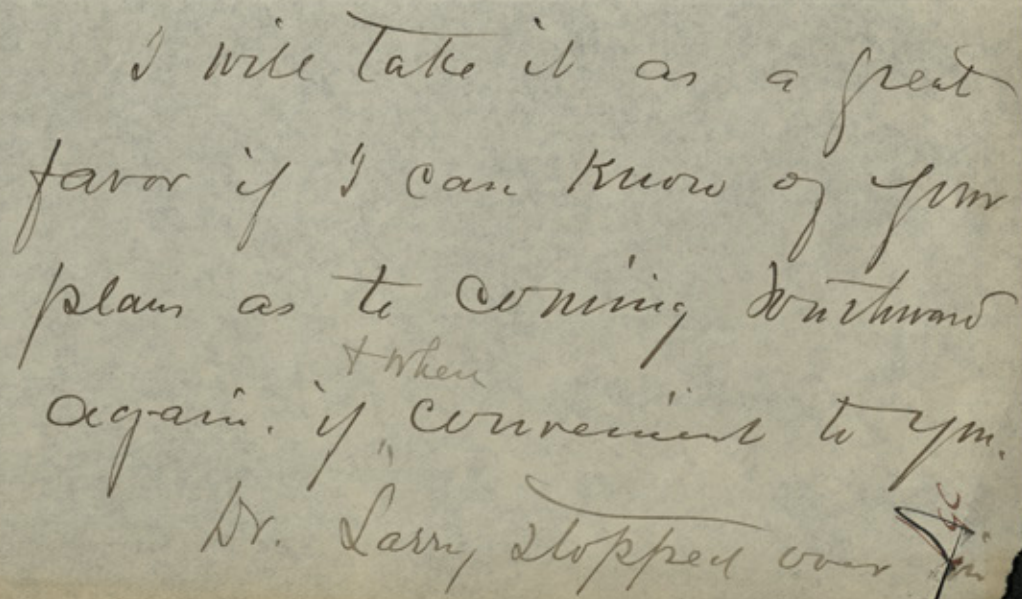 I will take it as a great
favor if I can know of your
plans as to coming Southward
+ when
again. if convenient to you.
Dr. Larry stopped over in